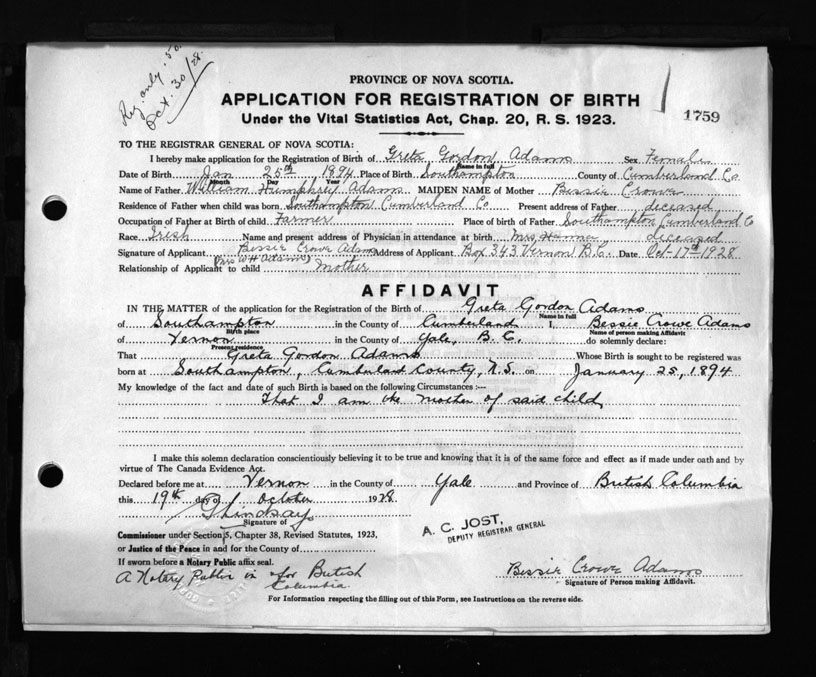 Reg. only .50
Oct. 30/28.
PROVINCE OF NOVA SCOTIA.
APPLICATION FOR REGISTRATION OF BIRTH
Under the Vital Statistics Act, Chap. 20, R. S. 1923.
1759
TO THE REGISTRAR GENERAL OF NOVA SCOTIA:
I hereby make application for the Registration of Birth of Greta Gordon Adams Sex Female
Name in full
Date of Birth Jan 25th 1894 Place of Birth Southampton County of Cumberland Co.
Month Day Year
Name of Father William Humphrey Adams MAIDEN NAME of Mother Bessie Crowe
Residence of Father when child was born Southampton Cumberland Co Present address of Father deceased
Occupation of Father at Birth of child Farmer Place of birth of Father Southampton Cumberland Co
Race Irish Name and present address of Physician in attendance at birth Mrs deceased
Signature of Applicant Bessie Crowe Adams Address of Applicant Box 343 Vernon B.C. Date Oct 17th 1928
(Mrs W H Adams)
Relationship of Applicant to child Mother
AFFIDAVIT
IN THE MATTER of the application for the Registration of the Birth of Greta Gordon Adams
Name in full
of Southampton in the County of Cumberland I, Bessie Crowe Adams
Birth place Name of person making Affidavit
of Vernon in the County of Yale, B.C. do solemnly declare:
Present residence
That Greta Gordon Adams Whose Birth is sought to be registered was
born at Southampton, Cumberland County, N.S. on January 25, 1894
My knowledge of the fact and date of such Birth is based on the following Circumstances :—
That I am the mother of said child
I make this solemn declaration conscientiously believing it to be true and knowing that it is of the same force and effect as if made under oath and by
virtue of The Canada Evidence Act.
Declared before me at Vernon in the County of Yale and Province of British Columbia
this 19th day of October 1928.
Lindsay
Signature of
A. C. JOST,
DEPUTY REGISTRAR GENERAL
Commissioner under Section 5, Chapter 38, Revised Statutes, 1923,
or Justice of the Peace in and for the County of
If sworn before a Notary Public affix seal.
A Notary Public in & for British
Columbia
Bessie Crowe Adams
Signature of Person making Affidavit.
For Information respecting the filling out of this Form, see Instructions on the reverse side.